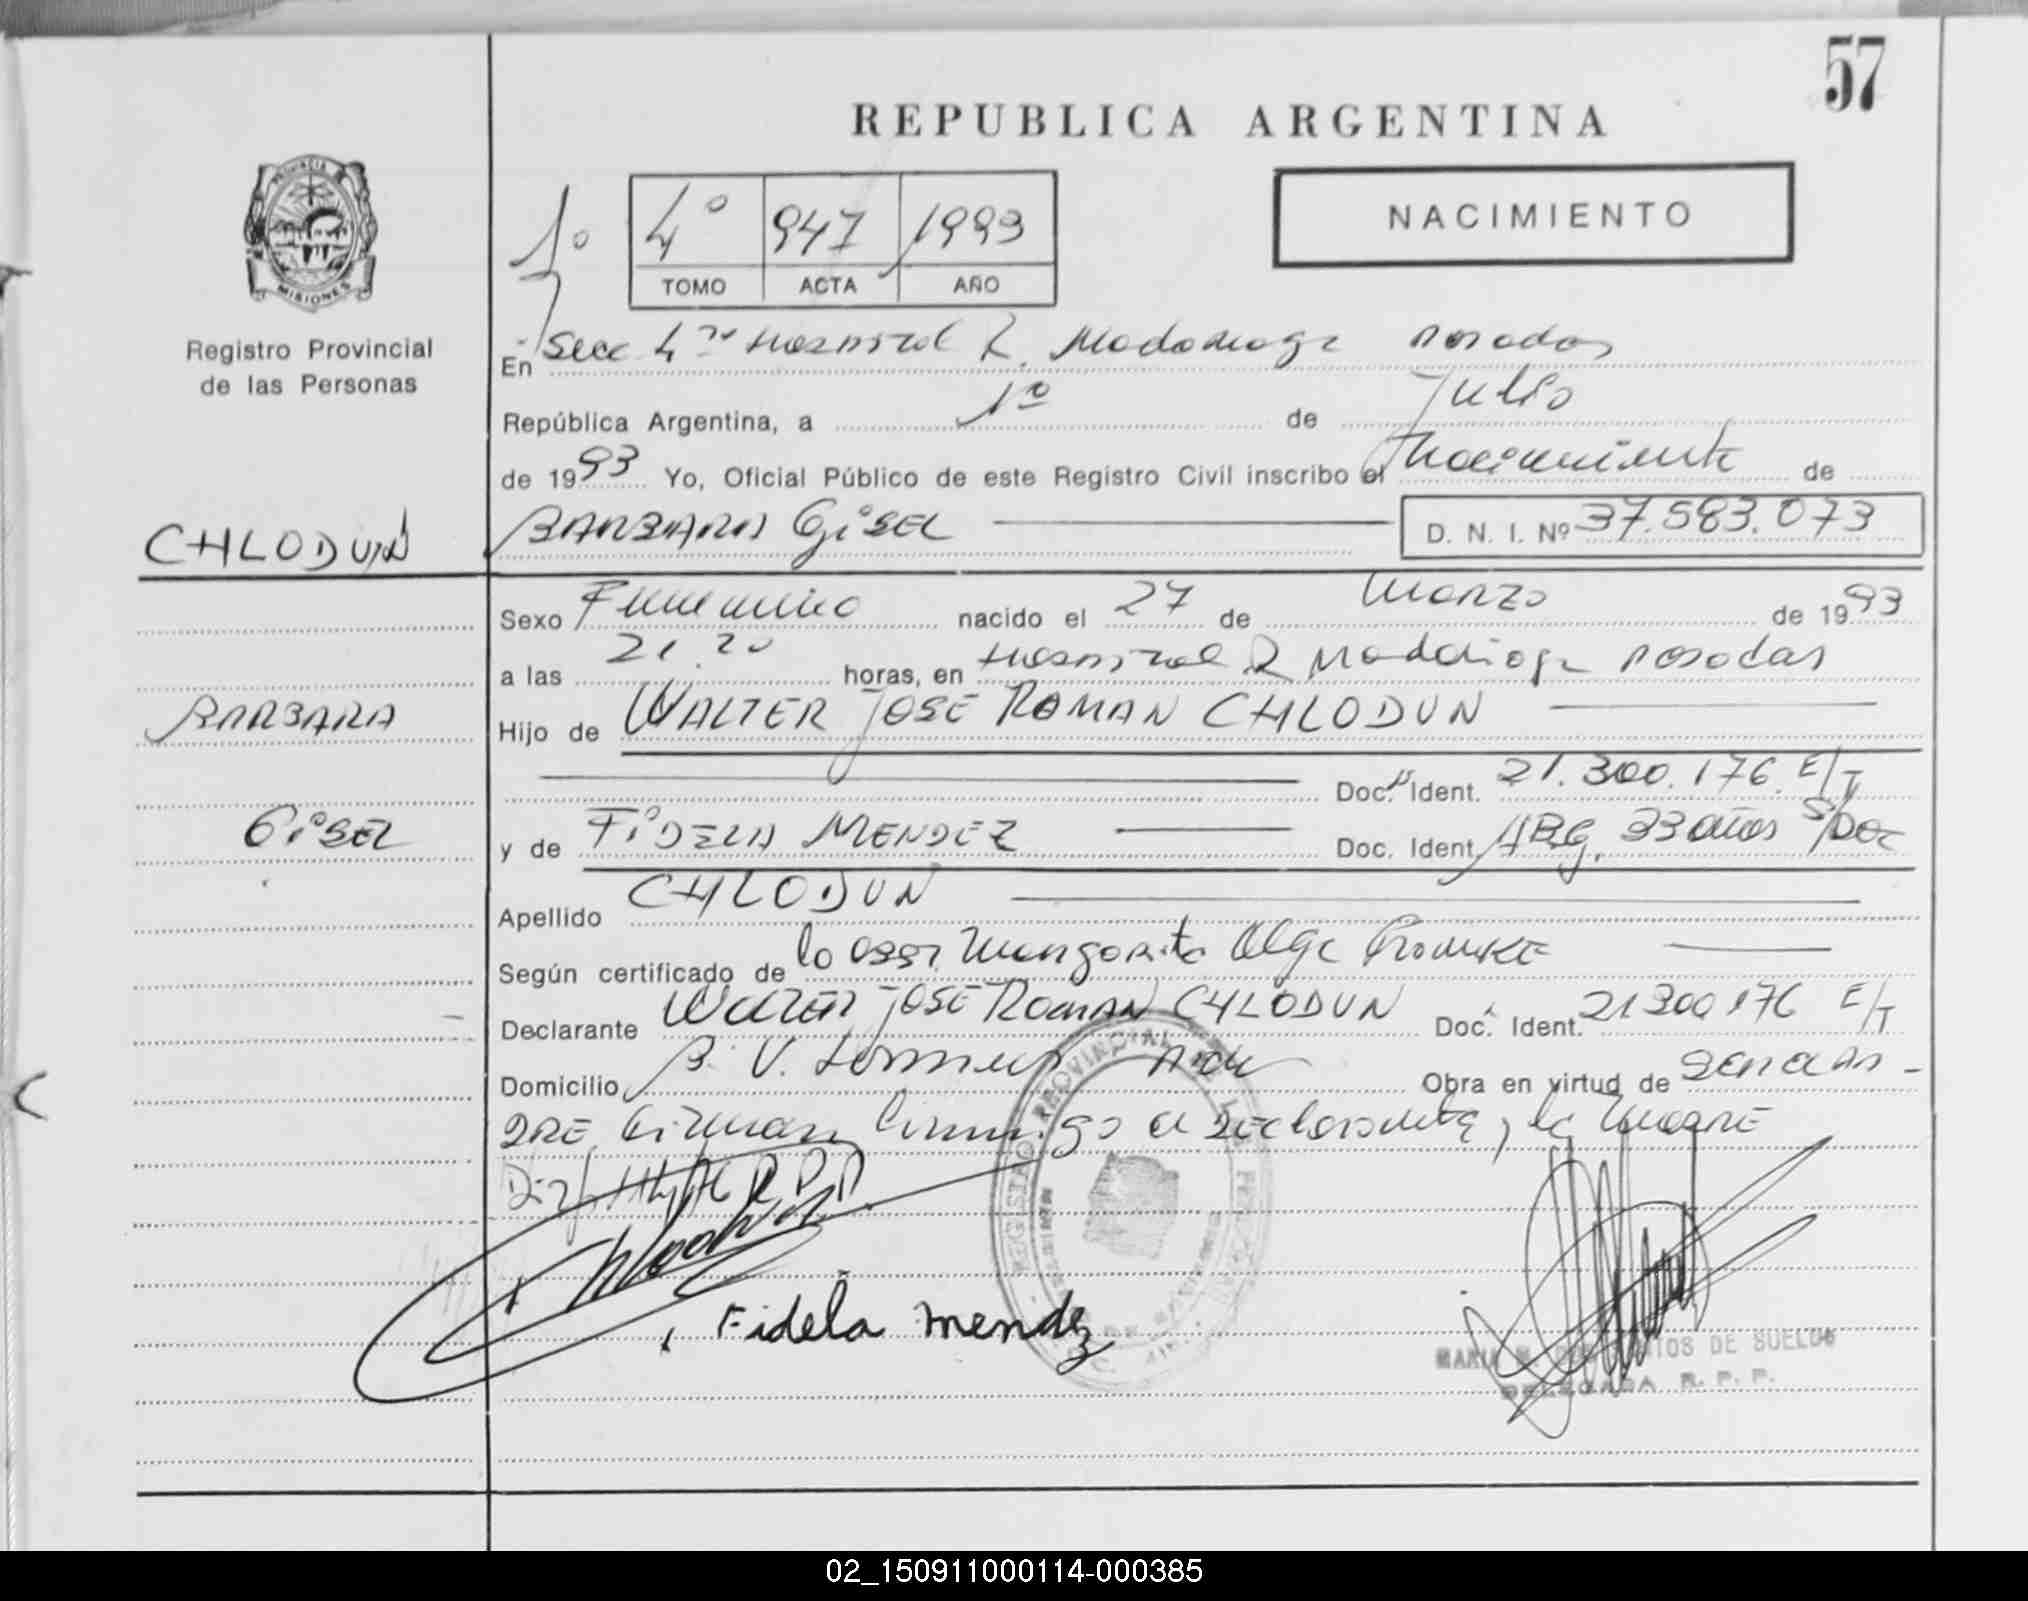 57
REPUBLICA ARGENTINA
NACIMIENTO
1º
4º 947 1993
TOMO ACTA AÑO
PROVINCIA
MISIONES
Registro Provincial
de las Personas
En Secc 4ta Hospital R. Madariaga Posadas
República Argentina, a 1º de Julio
de 1993 Yo, Oficial Público de este Registro Civil inscribo el Nacimiento de
CHLODUN
BARBARA GISEL D. N. I. Nº 37.583.073
Sexo Femenino nacido el 27 de Marzo de 1993
a las 21.20 horas, en Hospital R Madariaga Posadas
BARBARA
Hijo de WALTER JOSE ROMAN CHLODUN
Doc. Ident. 21.300.176 E/T
GISEL
y de FIDELA MENDEZ Doc. Ident. ARG. 33 años S/Doc
Apellido CHLODUN
Según certificado de la Obst. Margarita Olga
Declarante WALTER JOSE ROMAN CHLODUN Doc. Ident. 21300176 E/T
Domicilio B. V. Obra en virtud de ser el pa-
dre. Firman conmigo el declarante y la madre
Fidela mendez
REGISTRO PROVINCIAL DE LAS PERSONAS
MARIA DE SUELDO
DELEGADA R. P. P.
02_150911000114-000385